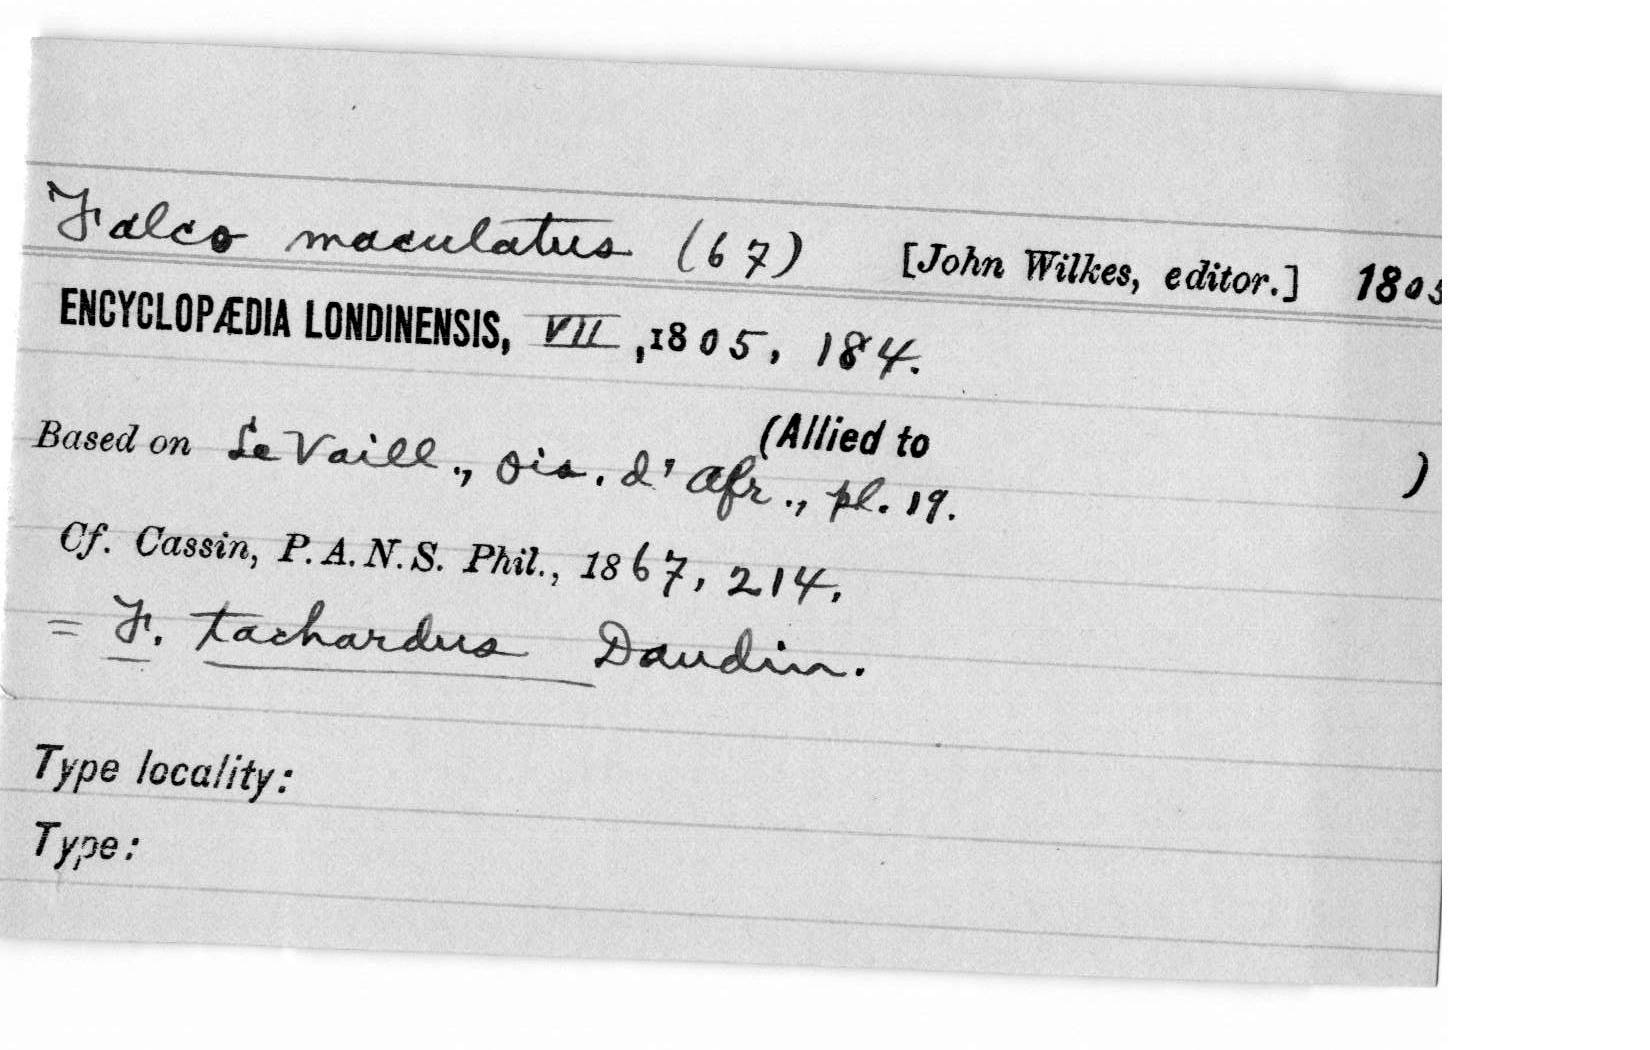 Falco maculatus (67) [John Wilkes, editor.] 1805
ENCYCLOPÆDIA LONDINENSIS, VII, 1805, 184.
(Allied to )
Based on Le Vaill., Ois. d'Afr., pl. 19.
Cf. Cassin, P. A. N. S. Phil., 1867, 214.
= F. tachardus Daudin.
Type locality:
Type: